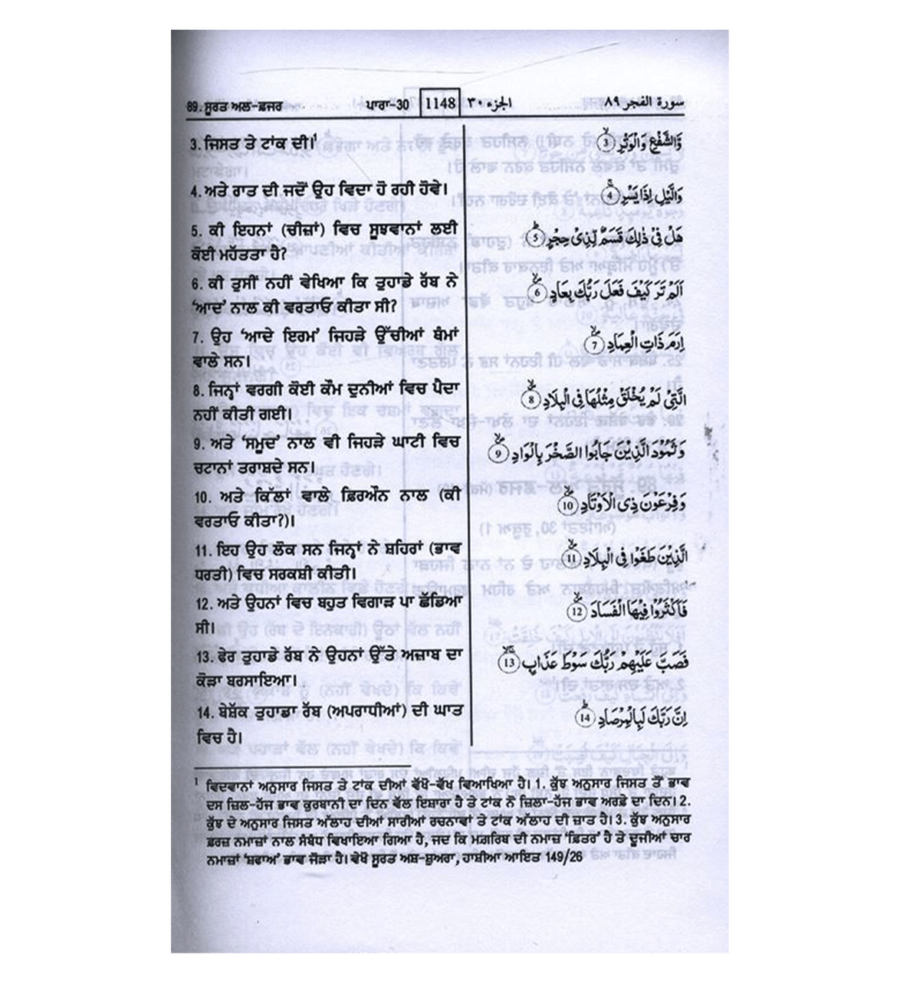 89. ਸੂਰਤ ਅਲ-ਫ਼ਜਰ ਪਾਰਾ-30 1148 الجزء ٣٠ سورة الفجر ٨٩
3. ਜਿਸਤ ਤੇ ਟਾਂਕ ਦੀ।¹
4. ਅਤੇ ਰਾਤ ਦੀ ਜਦੋਂ ਉਹ ਵਿਦਾ ਹੋ ਰਹੀ ਹੋਵੇ।
5. ਕੀ ਇਹਨਾਂ (ਚੀਜ਼ਾਂ) ਵਿਚ ਸੂਝਵਾਨਾਂ ਲਈ
ਕੋਈ ਮਹੱਤਤਾ ਹੈ?
6. ਕੀ ਤੁਸੀਂ ਨਹੀਂ ਵੇਖਿਆ ਕਿ ਤੁਹਾਡੇ ਰੱਬ ਨੇ
'ਆਦ' ਨਾਲ ਕੀ ਵਰਤਾਓ ਕੀਤਾ ਸੀ?
7. ਉਹ 'ਆਦੇ ਇਰਮ' ਜਿਹੜੇ ਉੱਚੀਆਂ ਥੰਮਾਂ
ਵਾਲੇ ਸਨ।
8. ਜਿਨ੍ਹਾਂ ਵਰਗੀ ਕੋਈ ਕੌਮ ਦੁਨੀਆਂ ਵਿਚ ਪੈਦਾ
ਨਹੀਂ ਕੀਤੀ ਗਈ।
9. ਅਤੇ 'ਸਮੂਦ' ਨਾਲ ਵੀ ਜਿਹੜੇ ਘਾਟੀ ਵਿਚ
ਚਟਾਨਾਂ ਤਰਾਸ਼ਦੇ ਸਨ।
10. ਅਤੇ ਕਿੱਲਾਂ ਵਾਲੇ ਫ਼ਿਰਔਨ ਨਾਲ (ਕੀ
ਵਰਤਾਓ ਕੀਤਾ?)।
11. ਇਹ ਉਹ ਲੋਕ ਸਨ ਜਿਨ੍ਹਾਂ ਨੇ ਸ਼ਹਿਰਾਂ (ਭਾਵ
ਧਰਤੀ) ਵਿਚ ਸਰਕਸ਼ੀ ਕੀਤੀ।
12. ਅਤੇ ਉਹਨਾਂ ਵਿਚ ਬਹੁਤ ਵਿਗਾੜ ਪਾ ਛੱਡਿਆ
ਸੀ।
13. ਫੇਰ ਤੁਹਾਡੇ ਰੱਬ ਨੇ ਉਹਨਾਂ ਉੱਤੇ ਅਜ਼ਾਬ ਦਾ
ਕੋੜਾ ਬਰਸਾਇਆ।
14. ਬੇਸ਼ੱਕ ਤੁਹਾਡਾ ਰੱਬ (ਅਪਰਾਧੀਆਂ) ਦੀ ਘਾਤ
ਵਿਚ ਹੈ।
وَّالشَّفْعِ وَالْوَتْرِ 3
وَالَّيْلِ اِذَا يَسْرِ 4
هَلْ فِىْ ذٰلِكَ قَسَمٌ لِّذِىْ حِجْرٍ 5
اَلَمْ تَرَ كَيْفَ فَعَلَ رَبُّكَ بِعَادٍ 6
اِرَمَ ذَاتِ الْعِمَادِ 7
الَّتِىْ لَمْ يُخْلَقْ مِثْلُهَا فِى الْبِلَادِ 8
وَثَمُوْدَ الَّذِيْنَ جَابُوا الصَّخْرَ بِالْوَادِ 9
وَفِرْعَوْنَ ذِى الْاَوْتَادِ 10
الَّذِيْنَ طَغَوْا فِى الْبِلَادِ 11
فَاَكْثَرُوْا فِيْهَا الْفَسَادَ 12
فَصَبَّ عَلَيْهِمْ رَبُّكَ سَوْطَ عَذَابٍ 13
اِنَّ رَبَّكَ لَبِالْمِرْصَادِ 14
¹ ਵਿਦਵਾਨਾਂ ਅਨੁਸਾਰ ਜਿਸਤ ਤੇ ਟਾਂਕ ਦੀਆਂ ਵੱਖੋ-ਵੱਖ ਵਿਆਖਿਆ ਹੈ। 1. ਕੁੱਝ ਅਨੁਸਾਰ ਜਿਸਤ ਤੋਂ ਭਾਵ
ਦਸ ਜ਼ਿਲ-ਹੱਜ ਭਾਵ ਕੁਰਬਾਨੀ ਦਾ ਦਿਨ ਵੱਲ ਇਸ਼ਾਰਾ ਹੈ ਤੇ ਟਾਂਕ ਨੌ ਜ਼ਿਲਾ-ਹੱਜ ਭਾਵ ਅਰਫ਼ੇ ਦਾ ਦਿਨ। 2.
ਕੁੱਝ ਦੇ ਅਨੁਸਾਰ ਜਿਸਤ ਅੱਲਾਹ ਦੀਆਂ ਸਾਰੀਆਂ ਰਚਨਾਵਾਂ ਤੇ ਟਾਂਕ ਅੱਲਾਹ ਦੀ ਜ਼ਾਤ ਹੈ। 3. ਕੁੱਝ ਅਨੁਸਾਰ
ਫ਼ਰਜ਼ ਨਮਾਜ਼ਾਂ ਨਾਲ ਸੰਬੰਧ ਵਿਖਾਇਆ ਗਿਆ ਹੈ, ਜਦ ਕਿ ਮਗ਼ਰਿਬ ਦੀ ਨਮਾਜ਼ 'ਫ਼ਿਤਰ' ਹੈ ਤੇ ਦੂਜੀਆਂ ਚਾਰ
ਨਮਾਜ਼ਾਂ 'ਸ਼ਵਾਅ' ਭਾਵ ਜੋੜਾ ਹੈ। ਵੇਖੋ ਸੂਰਤ ਅਸ਼-ਸ਼ੁਅਰਾ, ਹਾਸ਼ੀਆ ਆਇਤ 149/26